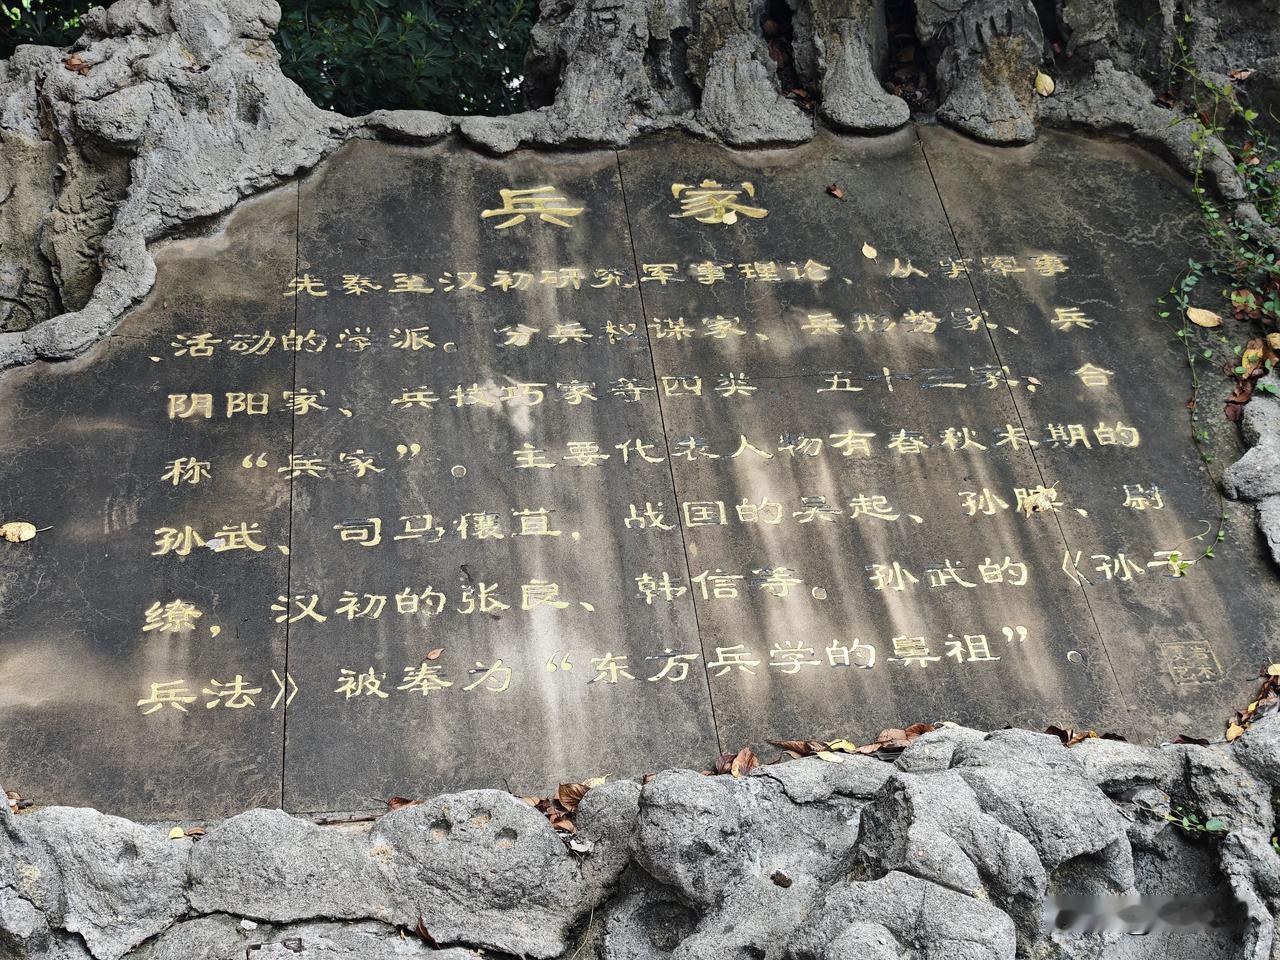 兵 家
先秦至汉初研究军事理论、从事军事
活动的学派。分兵权谋家、兵形势家、兵
阴阳家、兵技巧家等四类 五十三家,合
称“兵家”。主要代表人物有春秋末期的
孙武、司马穰苴,战国的吴起、孙膑、尉
缭,汉初的张良、韩信等。孙武的《孙子
兵法》被奉为“东方兵学的鼻祖”。